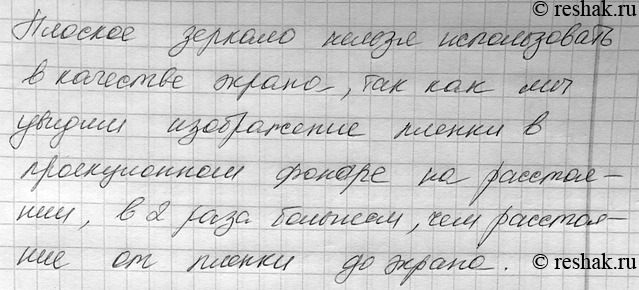 © reshak.ru
Плоское зеркало нельзя использовать
в качестве экрана, так как мы
увидим изображение пленки в
проекционном фонаре на расстоя-
нии, в 2 раза большем, чем расстоя-
ние от пленки до экрана.
© reshak.ru